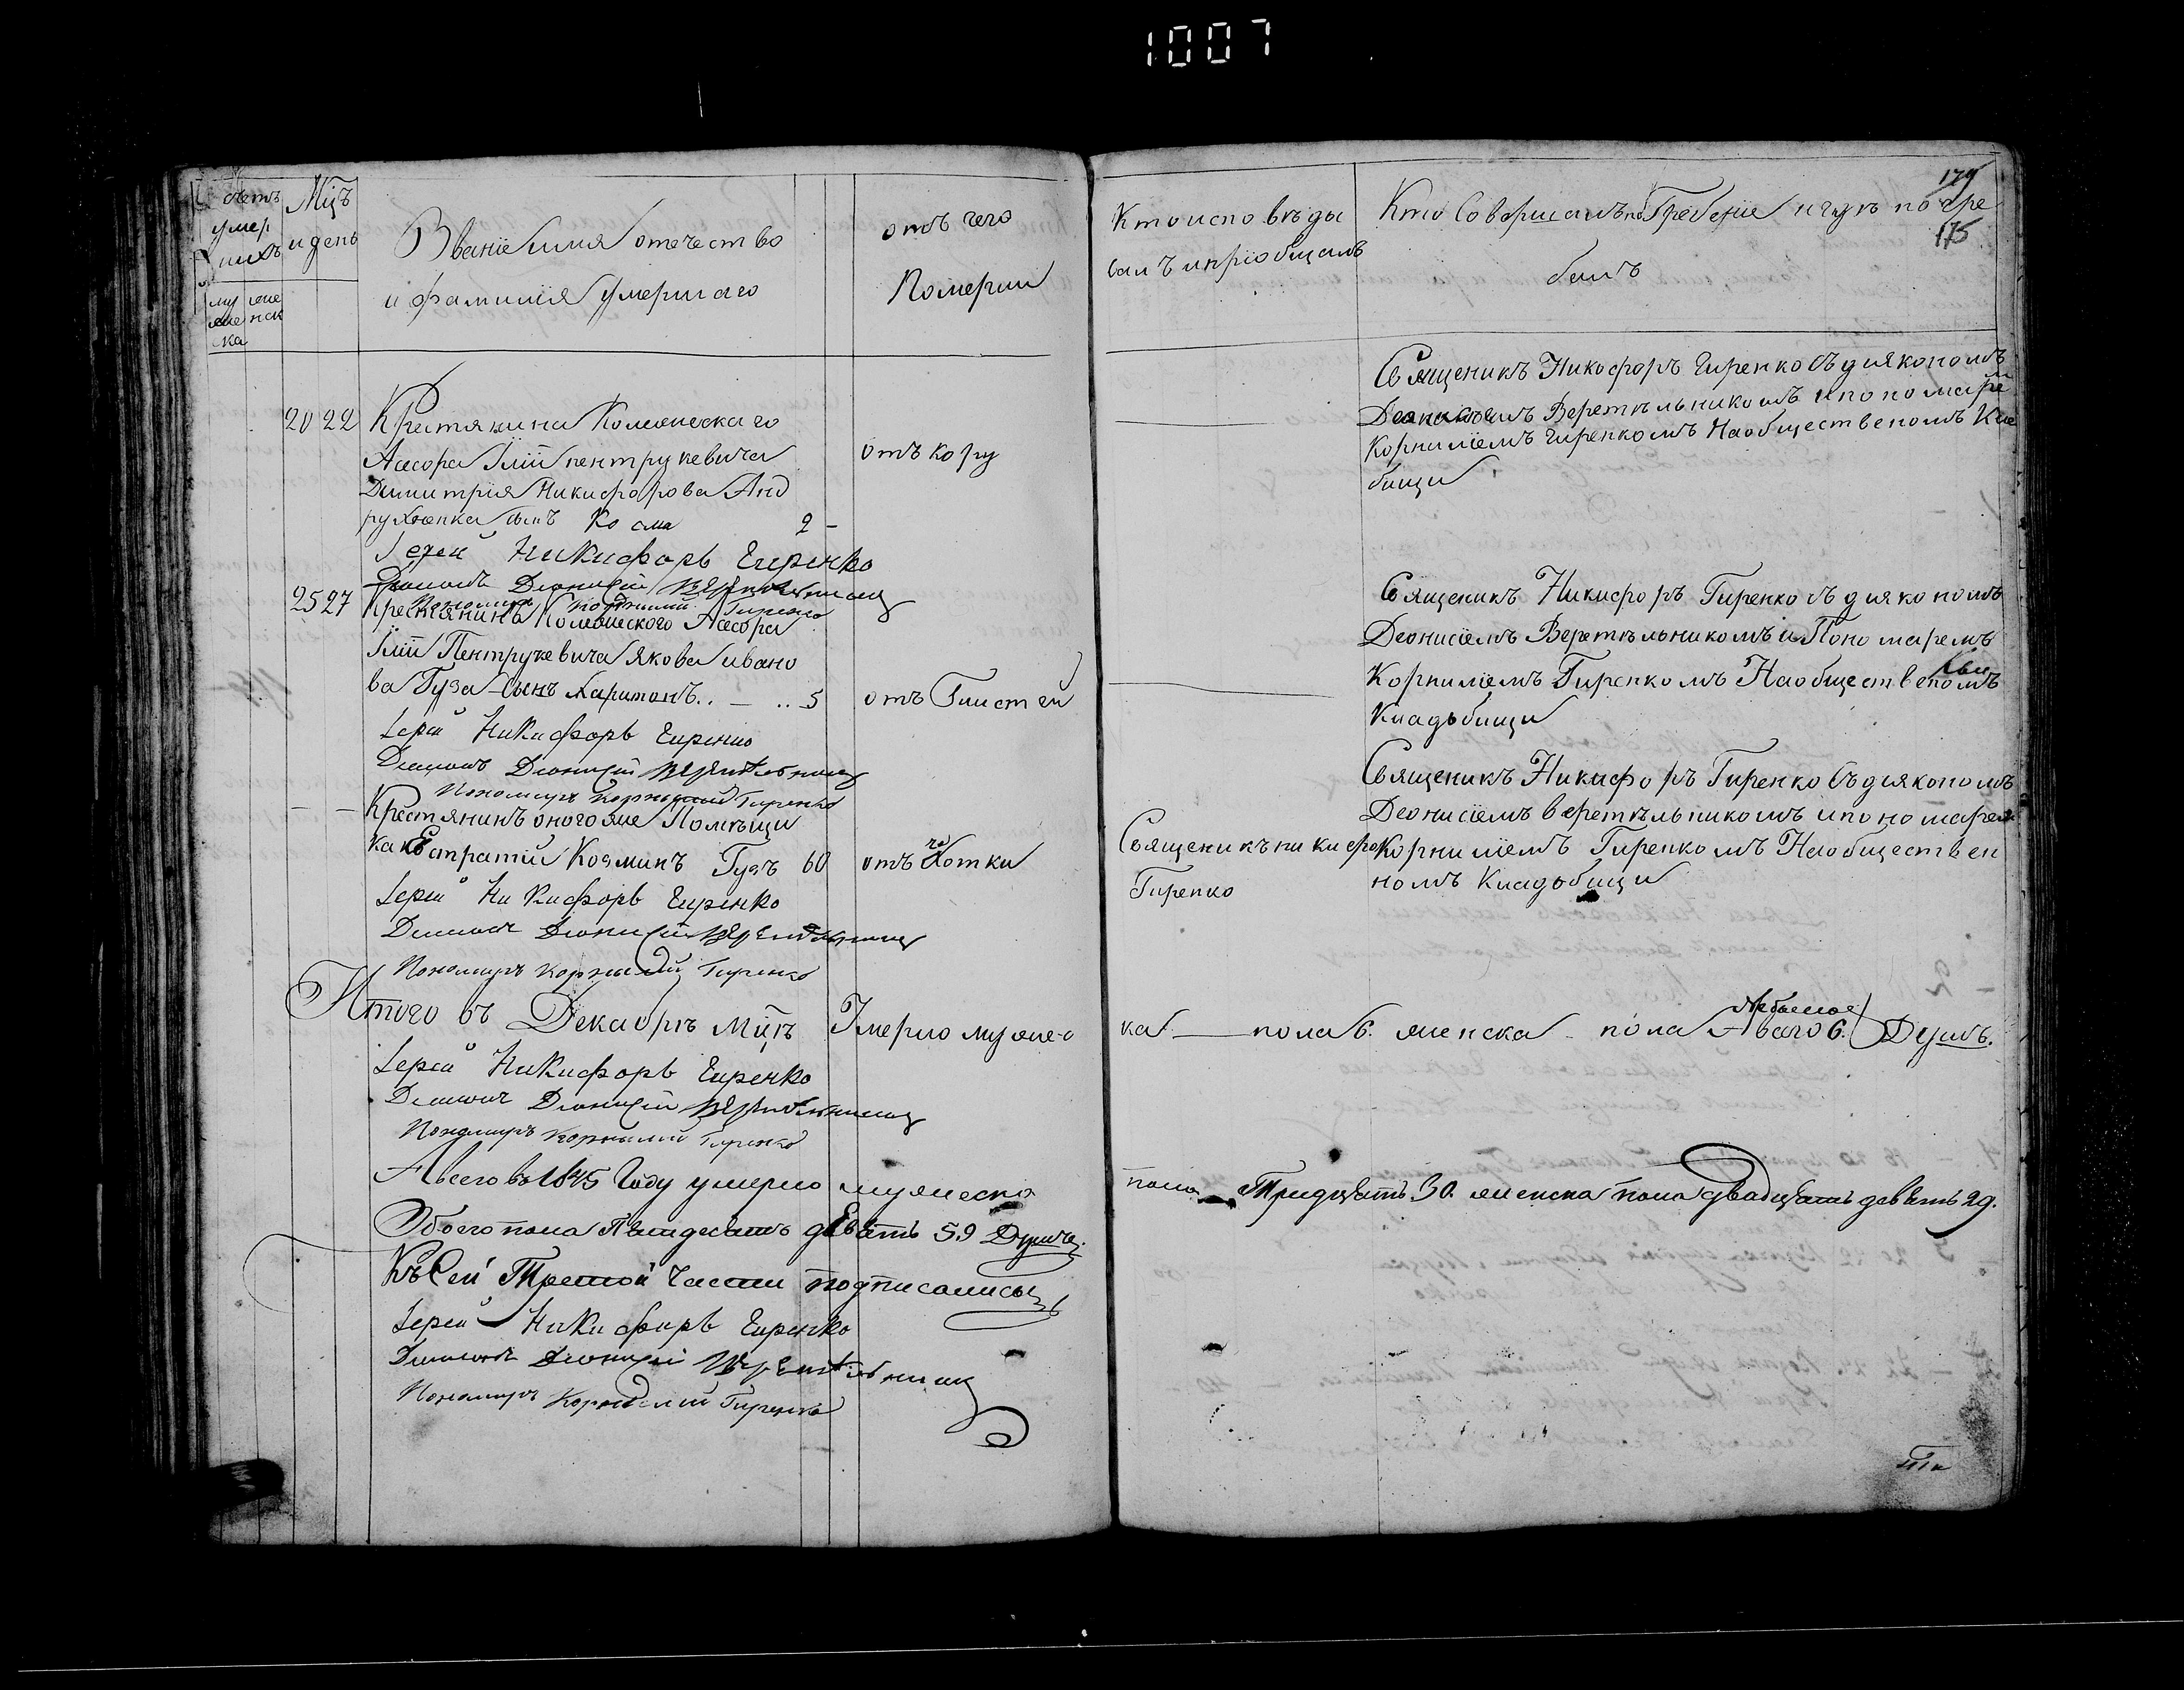 1007
179
175
счетъ умер шихъ
Мцъ и день
Званіе имя отечество
и фамилія умершаго
отъ чего
Померли
Кто исповѣды
валъ и пріобщалъ
Кто Совершалъ по Гребеніе и гдѣ погре
бенъ
му же ска
жен ск
20 22 Крестянина Колежескаго
Асесора Іліи пентрукевича
Димитрія Никифорова Анд
рухненка сынъ Козма 2 -
отъ кору
Священикъ Никифоръ Гиренко съ диякономъ
Деонисіемъ Веретѣльникомъ и пономарем
Корниліемъ Гиренкомъ На обществепомъ Кла
бищи
Іерей Никифоръ Гиренко
Диаконъ Дионисій Веретельникъ
Пономарь Корнилий Гиренко
25 27 Крестянинъ Колежского Асесора
Іліи Пентрукевича Якова ивано
ва Гуза Сынъ Харитонъ .. — .. 5
отъ Глистей
Священикъ Никифоръ Гиренко съ диякономъ
Деонисіемъ Веретѣльникомъ и Пономаремъ
Корниліемъ Гиренкомъ На обществепомъ
Кладьбищи
Іерей Никифоръ Гиренко
Диаконъ Дионисій Веретельникъ
Пономарь Корнилий Гиренко
— — Крестянинъ оного же Помѣщи
ка Евстратій Козминъ Гузъ 60
отъ чахотки
Священикъ никифоръ
Гиренко
Священикъ Никифоръ Гиренко съ диякономъ
Деонисіемъ веретѣльникомъ и пономарем
Корниліемъ Гиренкомъ На обществен
номъ Кладьбищи
Іерей Никифоръ Гиренко
Диаконъ Дионисій Веретельникъ
Пономарь Корнилий Гиренко
Итого въ Декабрѣ Мцѣ Умерло мужес
ка — пола 6. женска - пола Небыло Авсего 6. Душъ.
Іерей Никифоръ Гиренко
Диаконъ Дионисій Веретельникъ
Пономарь Корнилий Гиренко
Авсего въ 1845 Году умерло мужеска
пола Тридцать 30. женска пола двадцать девять 29.
Обоего пола Пятдесятъ девять 59 Душъ.
Къ Сей Третой Части подписались
Іерей Никифоръ Гиренко
Диаконъ Дионисій Веретельникъ
Пономарь Корнилий Гиренко